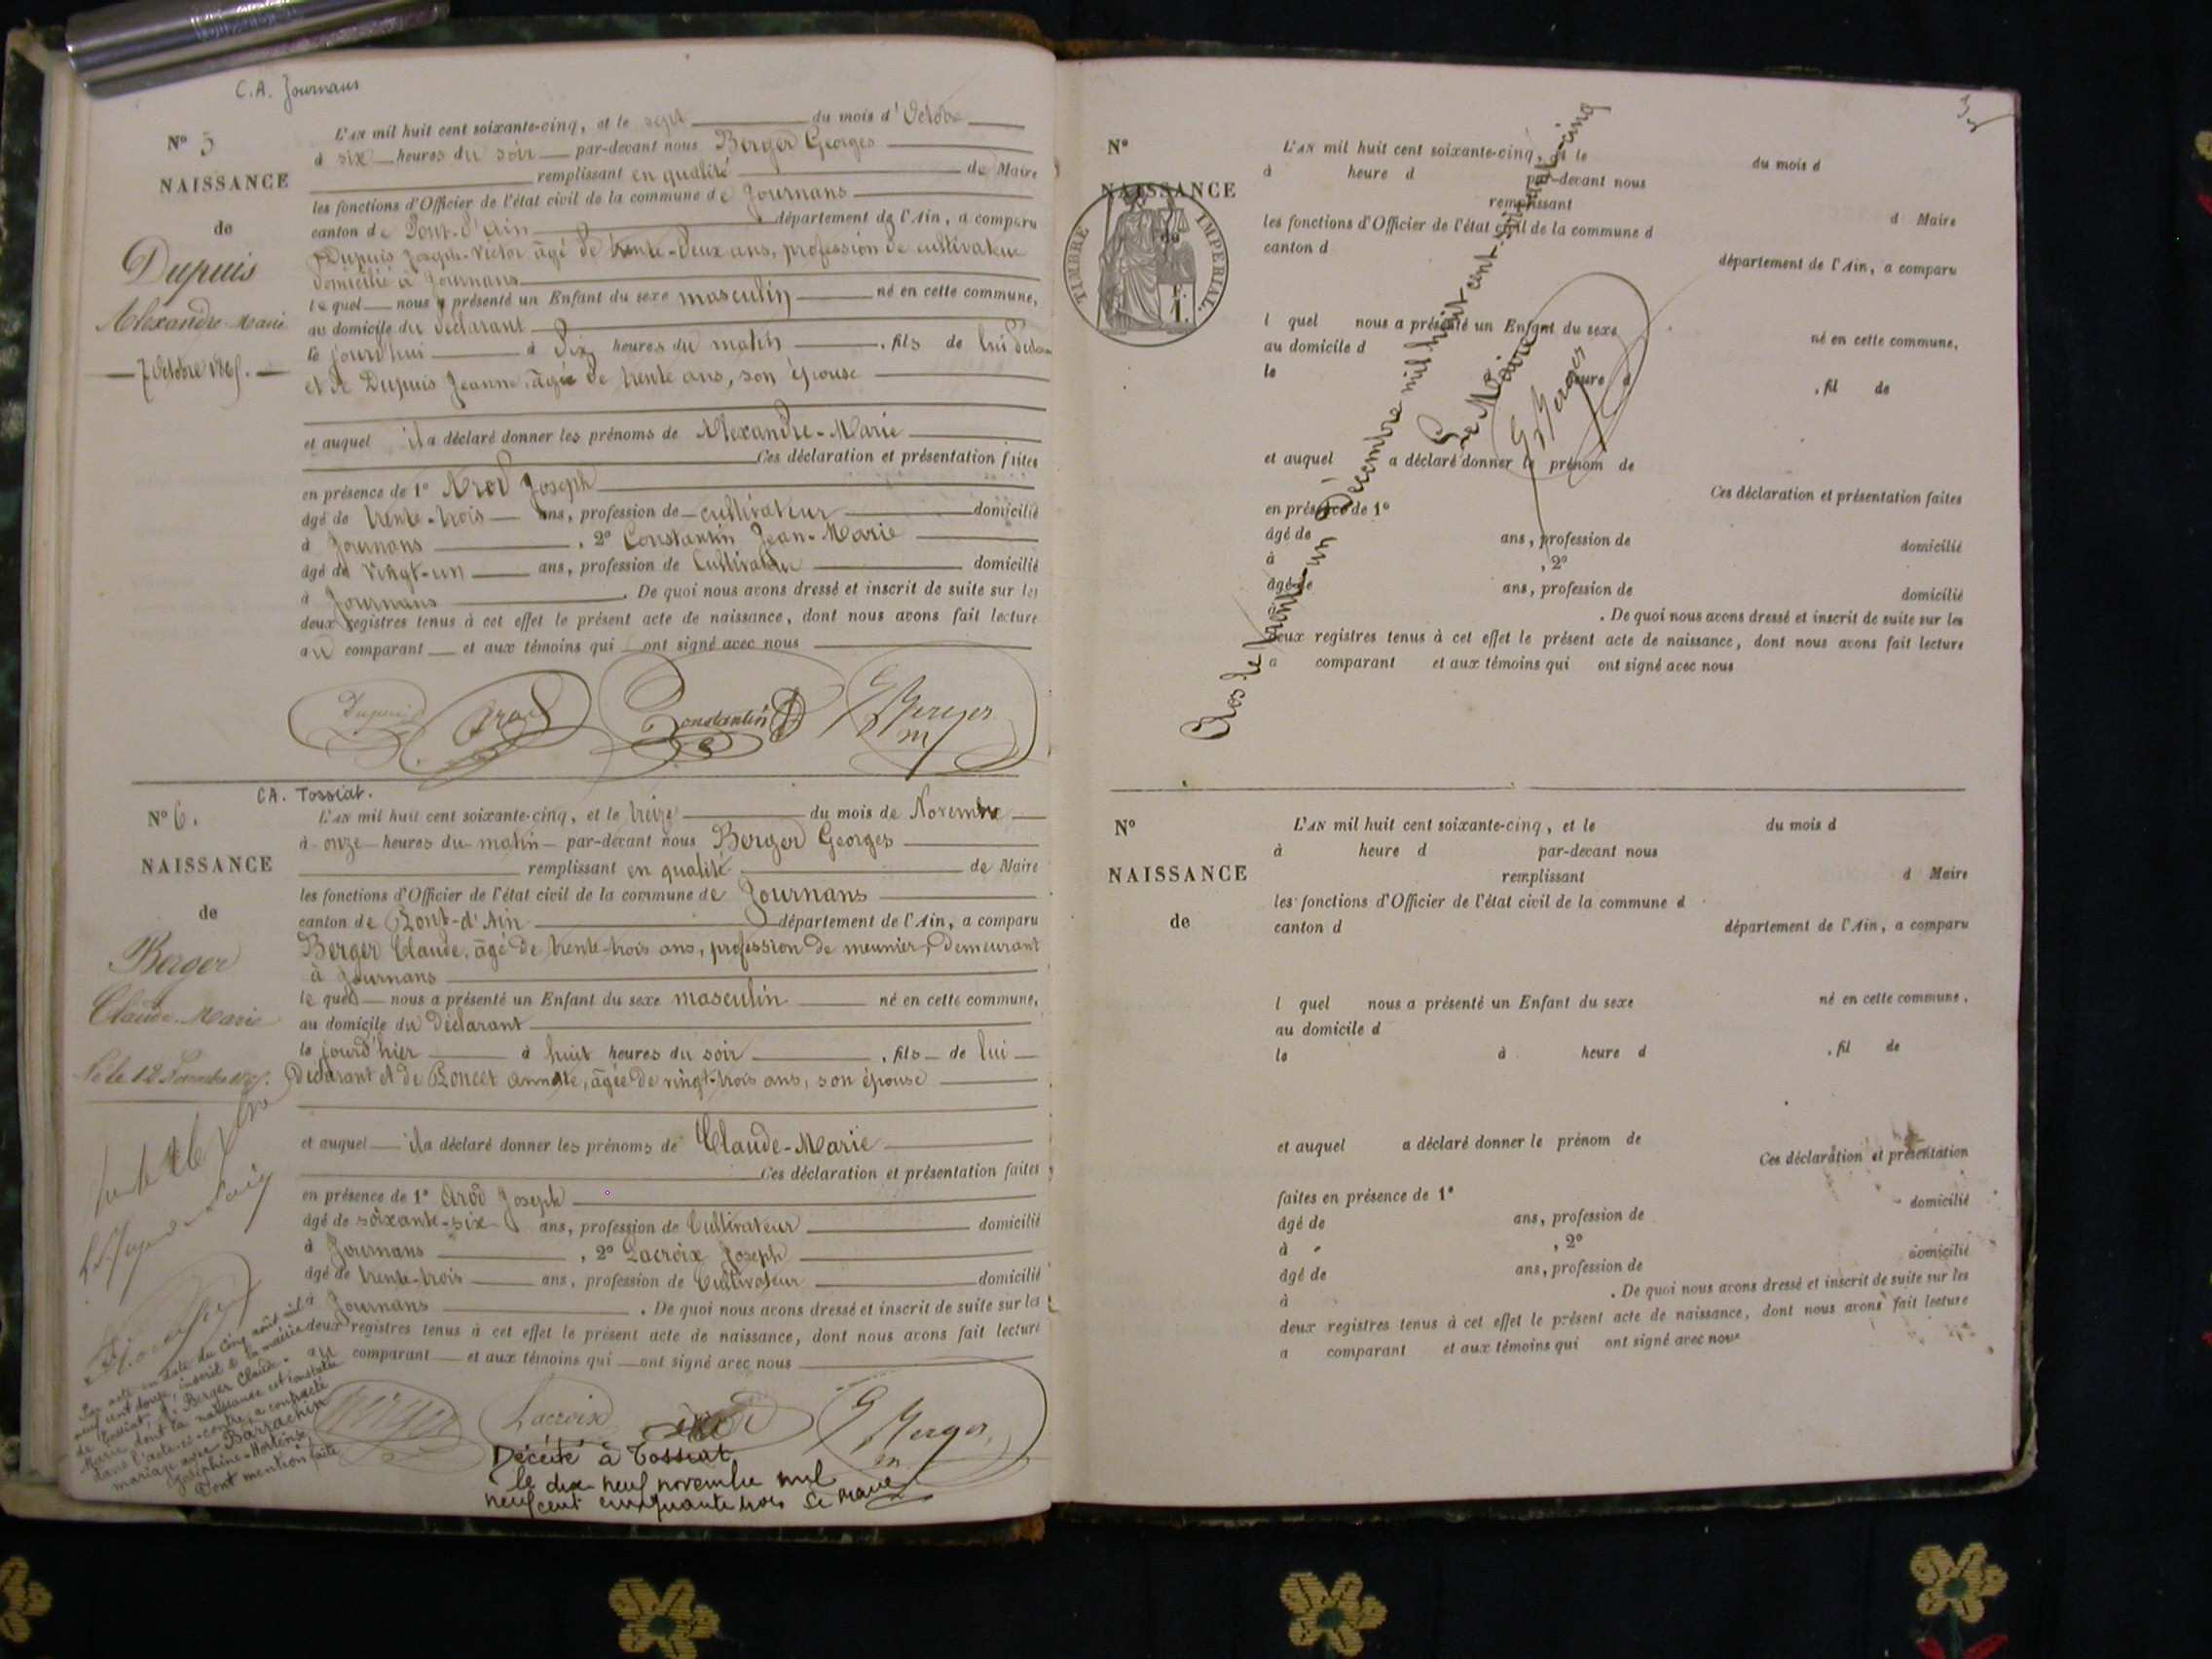 C.A. Journans
N° 5
NAISSANCE
de
Dupuis
Alexandre-Marie
7 Octobre 1865.
L'AN mil huit cent soixante-cinq, et le sept du mois d'Octobre
à six heures du soir par-devant nous Berger Georges
remplissant en qualité de Maire
les fonctions d'Officier de l'état civil de la commune de Journans
canton de Pont-d'Ain département de l'Ain, a comparu
Dupuis Joseph-Victor âgé de trente-deux ans, profession de cultivateur
domicilié à Journans
lequel nous a présenté un Enfant du sexe masculin né en cette commune,
au domicile du déclarant
le jourd'hui à dix heures du matin , fils de lui
et de Dupuis Jeanne, âgée de trente ans, son épouse
et auquel il a déclaré donner les prénoms de Alexandre-Marie
Ces déclaration et présentation faites
en présence de 1° Arod Joseph
âgé de trente-trois ans, profession de cultivateur domicilié
à Journans , 2° Constantin Jean-Marie
âgé de vingt-un ans, profession de Cultivateur domicilié
à Journans . De quoi nous avons dressé et inscrit de suite sur les
deux registres tenus à cet effet le présent acte de naissance, dont nous avons fait lecture
au comparant et aux témoins qui ont signé avec nous
Dupuis Arod Constantin G Berger m
CA. Tossiat.
N° 6.
NAISSANCE
de
Berger
Claude-Marie
Né le 12 Novembre
L'AN mil huit cent soixante-cinq, et le treize du mois de Novembre
à onze heures du matin par-devant nous Berger Georges
remplissant en qualité de Maire
les fonctions d'Officier de l'état civil de la commune de Journans
canton de Pont-d'Ain département de l'Ain, a comparu
Berger Claude, âgé de trente-trois ans, profession de meunier, demeurant
à Journans
lequel nous a présenté un Enfant du sexe masculin né en cette commune,
au domicile du déclarant
le jourd'hier à huit heures du soir , fils de lui
Déclarant et de Poncet Annette, âgée de vingt-trois ans, son épouse
et auquel il a déclaré donner les prénoms de Claude-Marie
Ces déclaration et présentation faites
en présence de 1° Arod Joseph
âgé de soixante-six ans, profession de Cultivateur domicilié
à Journans , 2° Lacroix Joseph
âgé de trente-trois ans, profession de Cultivateur domicilié
à Journans . De quoi nous avons dressé et inscrit de suite sur les
deux registres tenus à cet effet le présent acte de naissance, dont nous avons fait lecture
au comparant et aux témoins qui ont signé avec nous
Berger Lacroix Arod G Berger m
Par acte en date du cinq août mil
neuf cent douze, inscrit à la mairie
de Tossiat, Berger Claude-
Marie dont la naissance est constatée
dans l'acte ci-contre, a contracté
mariage avec Barrachin
Joséphine-Hortense.
Dont mention faite
Décédé à Tossiat
le dix neuf novembre mil
neuf cent cinquante trois Le Maire
3
N°
NAISSANCE
de
TIMBRE IMPERIAL.
1.
L'AN mil huit cent soixante-cinq, et le du mois d
à heure d par-devant nous
remplissant d Maire
les fonctions d'Officier de l'état civil de la commune d
canton d département de l'Ain, a comparu
l quel nous a présenté un Enfant du sexe né en cette commune,
au domicile d
le heure d , fil de
et auquel a déclaré donner le prénom de
Ces déclaration et présentation faites
en présence de 1°
âgé de ans, profession de domicilié
à , 2°
âgé de ans, profession de domicilié
à . De quoi nous avons dressé et inscrit de suite sur les
deux registres tenus à cet effet le présent acte de naissance, dont nous avons fait lecture
a comparant et aux témoins qui ont signé avec nous
Clos le trente-un Décembre mil huit cent soixante-cinq
Le Maire
G Berger
N°
NAISSANCE
de
L'AN mil huit cent soixante-cinq, et le du mois d
à heure d par-devant nous
remplissant d Maire
les fonctions d'Officier de l'état civil de la commune d
canton d département de l'Ain, a comparu
l quel nous a présenté un Enfant du sexe né en cette commune,
au domicile d
le à heure d , fil de
et auquel a déclaré donner le prénom de
Ces déclaration et présentation
faites en présence de 1° domicilié
âgé de ans, profession de
à , 2° domicilié
âgé de ans, profession de
à . De quoi nous avons dressé et inscrit de suite sur les
deux registres tenus à cet effet le présent acte de naissance, dont nous avons fait lecture
a comparant et aux témoins qui ont signé avec nous